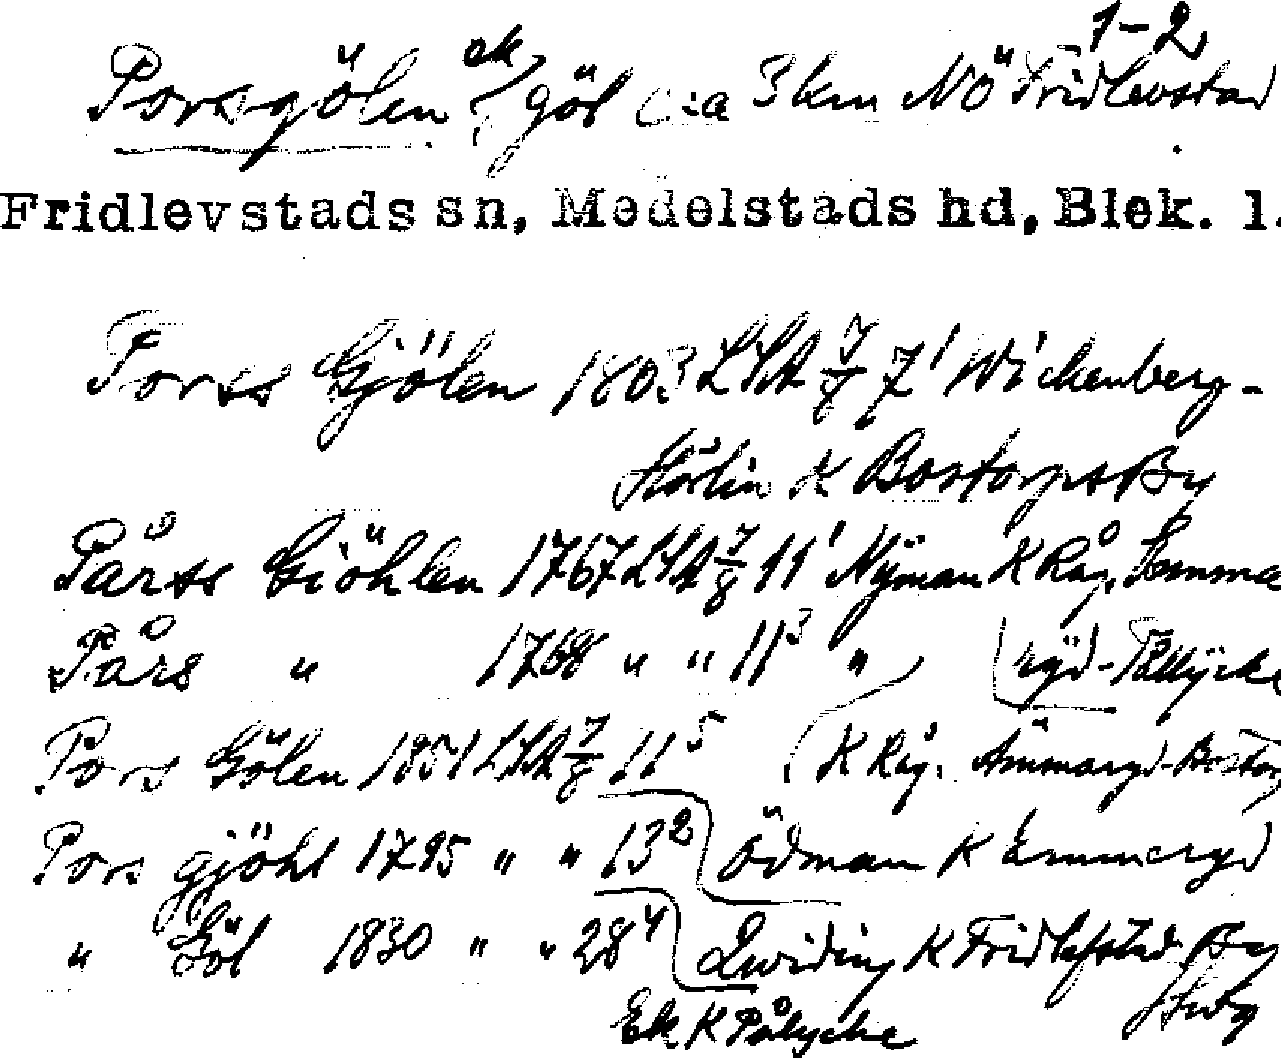 1-2
Porsgölen ek göl ca 3 km NÖ Fridlevstad
Fridlevstads sn, Medelstads hd, Blek. l.
Porss Gjölen 1803 LSA 7/8 7¹ Wickenberg-
K Bostorps By
Pårss Giöhlen 1767 LSA 7/8 11¹ Nyman K Råg.
Pårs " 1768 " " 11³ " ryd-Pållycke
Pors Gölen 1851 LSA 7/8 11⁵ K Råg. Ämmaryd-Bostorp
Pors gjöhl 1795 " " 13² Ödman K Emmeryd
" Göl 1830 " " 28⁴ Qwiding K Fridlefstad By
Ek K Pålycke